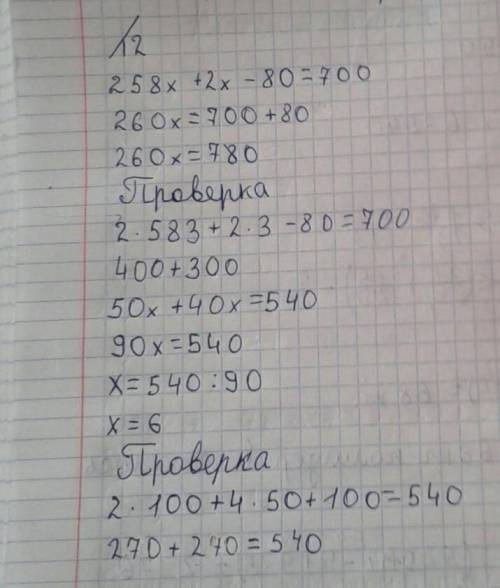 12
258x + 2x - 80 = 700
260x = 700 + 80
260x = 780
Проверка
2 · 583 + 2 · 3 - 80 = 700
400 + 300
50x + 40x = 540
90x = 540
x = 540 : 90
x = 6
Проверка
2 · 100 + 4 · 50 + 100 = 540
270 + 240 = 540